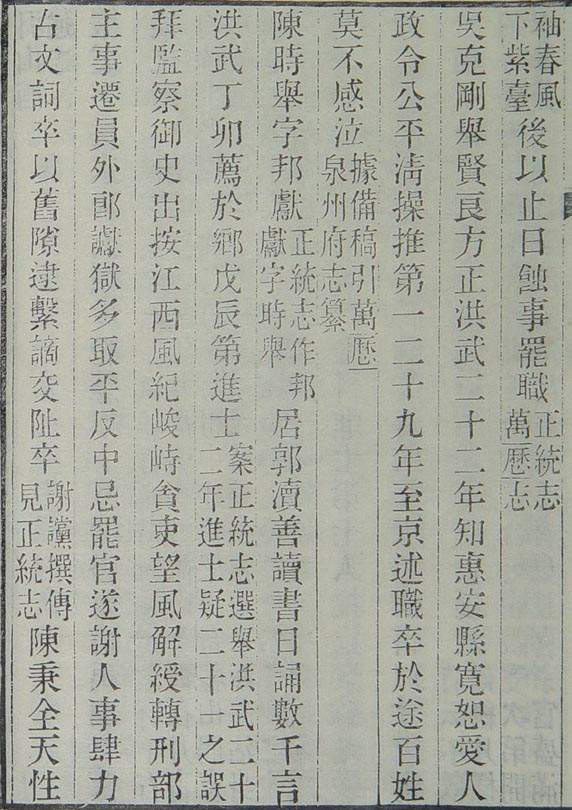 袖春風下紫臺後以止日蝕事罷職正統志萬歷志
吳克剛舉賢良方正洪武二十二年知惠安縣寬恕愛人
政令公平淸操推第一二十九年至京述職卒於途百姓
莫不感泣據備稿引萬歷泉州府志纂
陳時舉字邦獻正統志作邦獻字時舉居郭瀆善讀書日誦數千言
洪武丁卯薦於鄉戊辰第進士案正統志選舉洪武二十二年進士疑二十一之誤
拜監察御史出按江西風紀峻峙貪吏望風解綬轉刑部
主事遷員外郎讞獄多取平反中忌罷官遂謝人事肆力
古文詞卒以舊隙逮繫謫交阯卒謝讜撰傳見正統志陳秉全天性